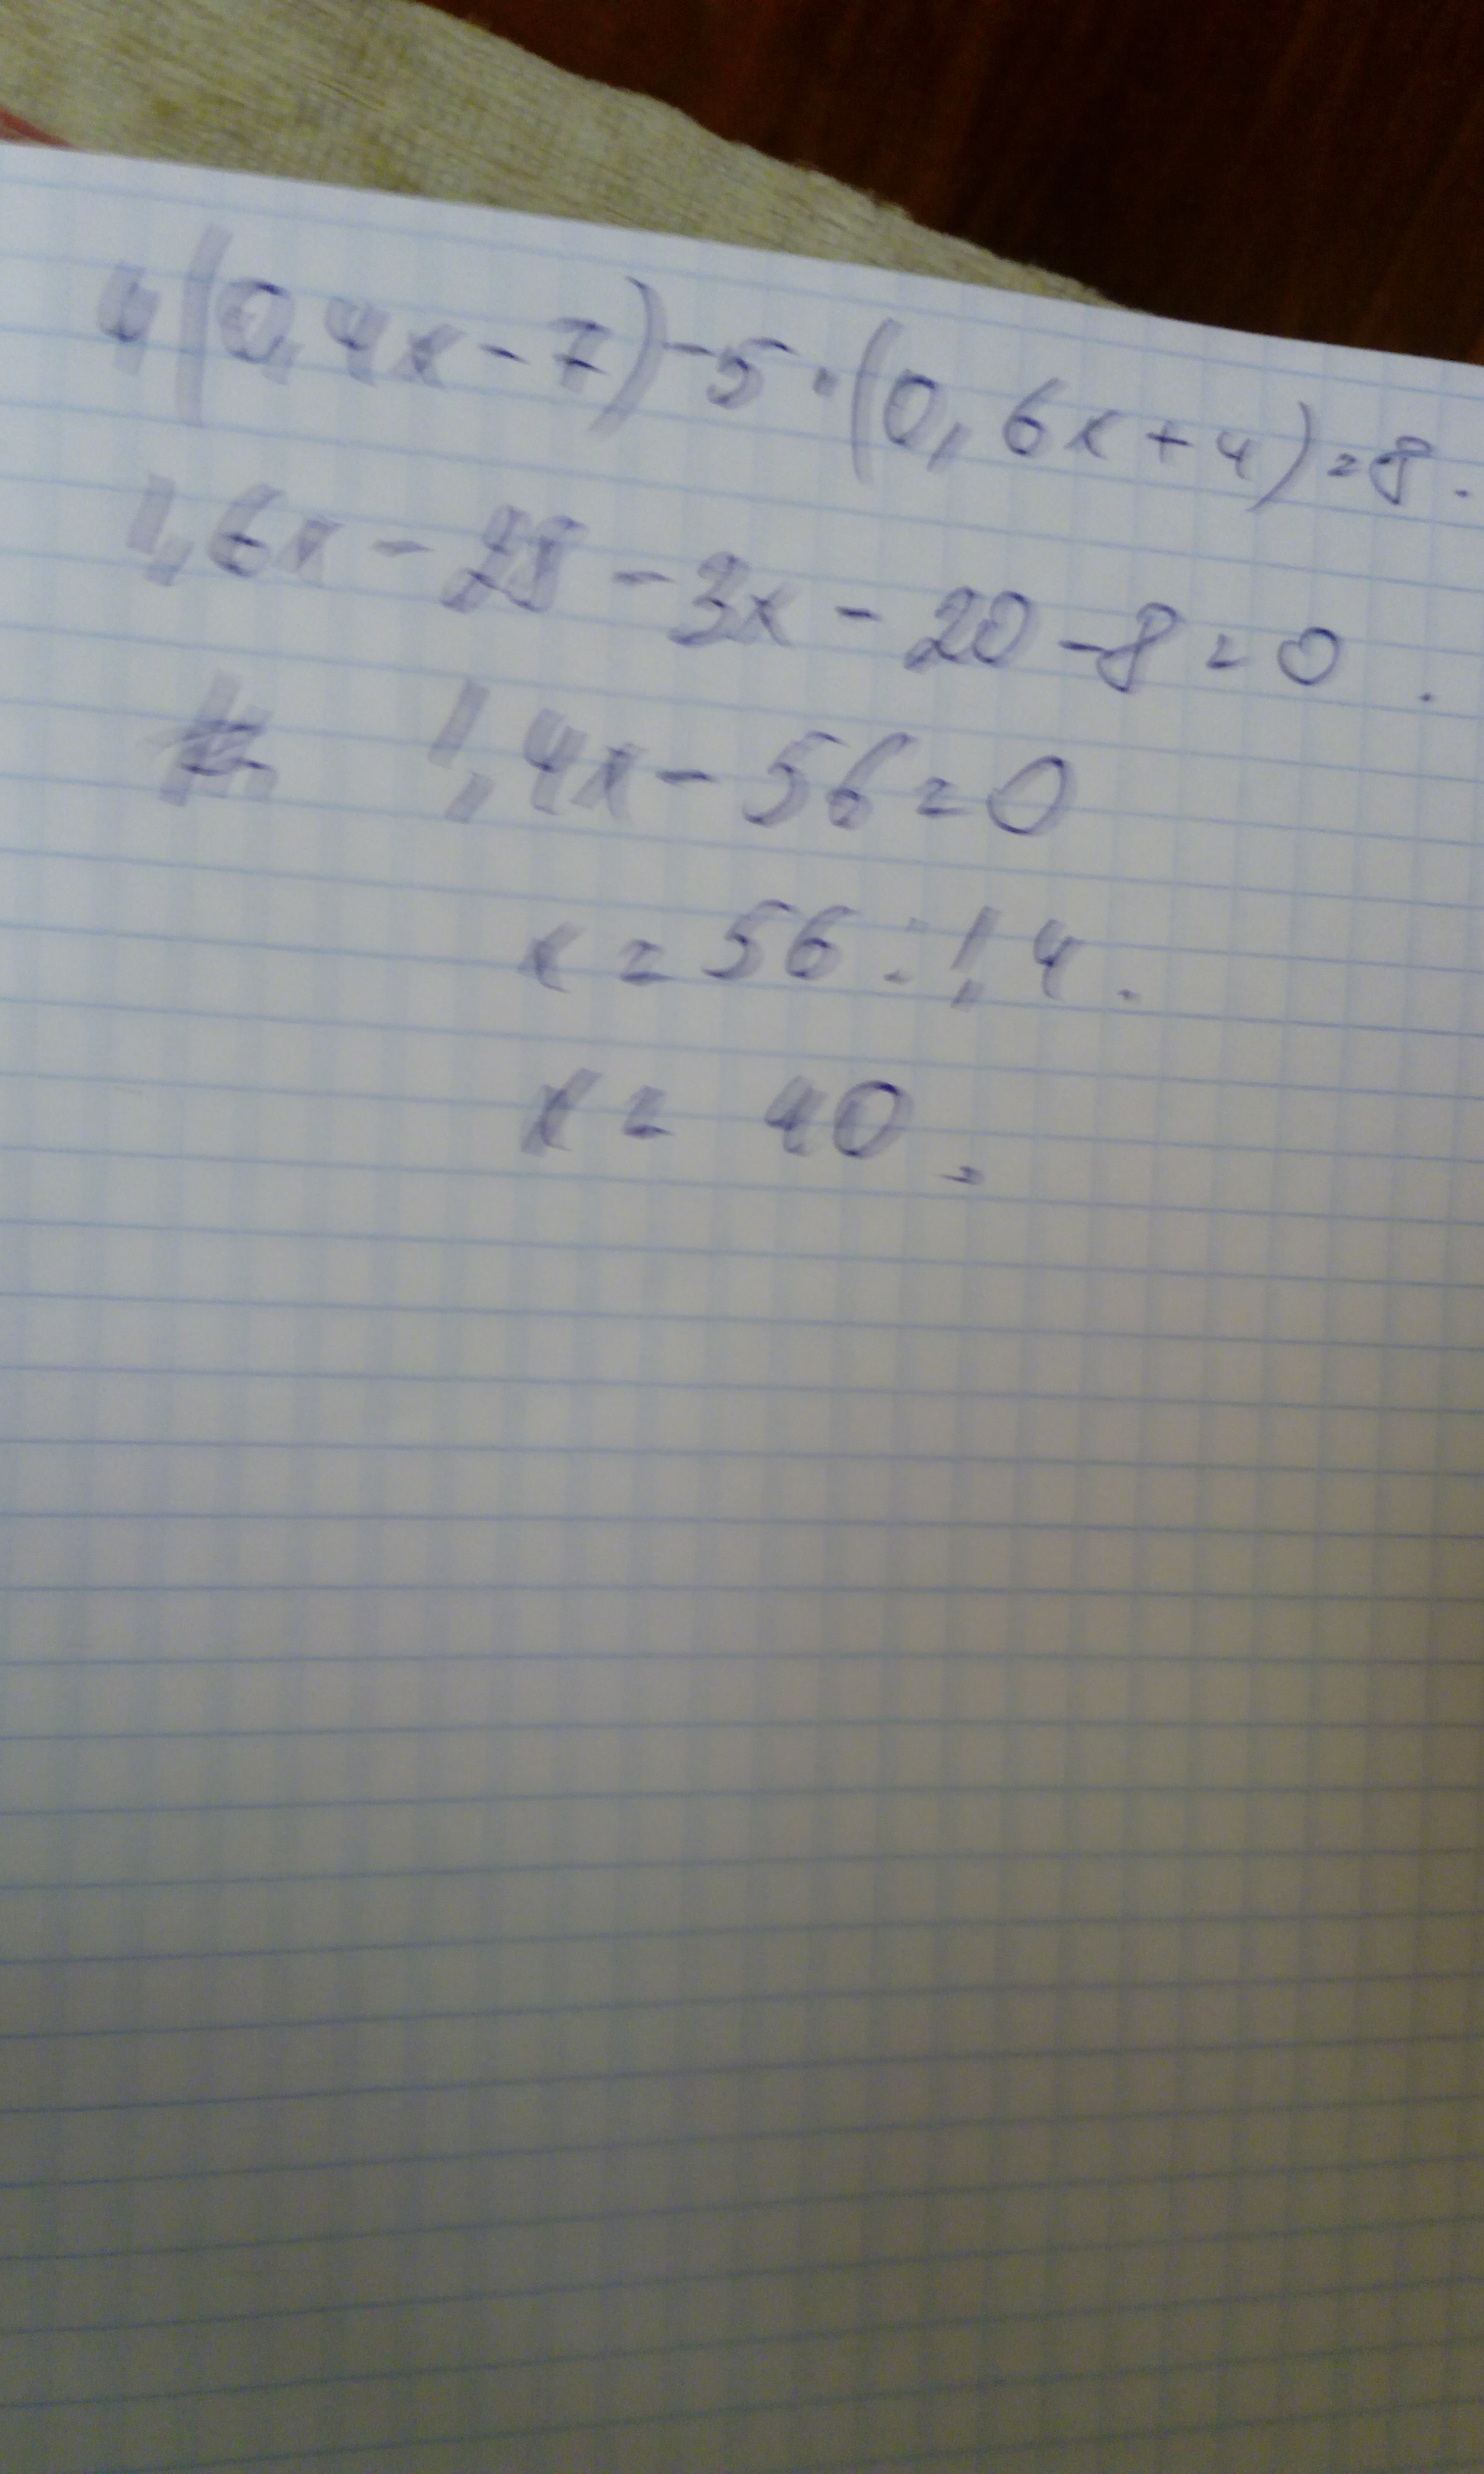 4(0,4x-7)-5·(0,6x+4)=8.
1,6x-28-3x-20-8=0.
1,4x-56=0
x=56:1,4.
x=40.